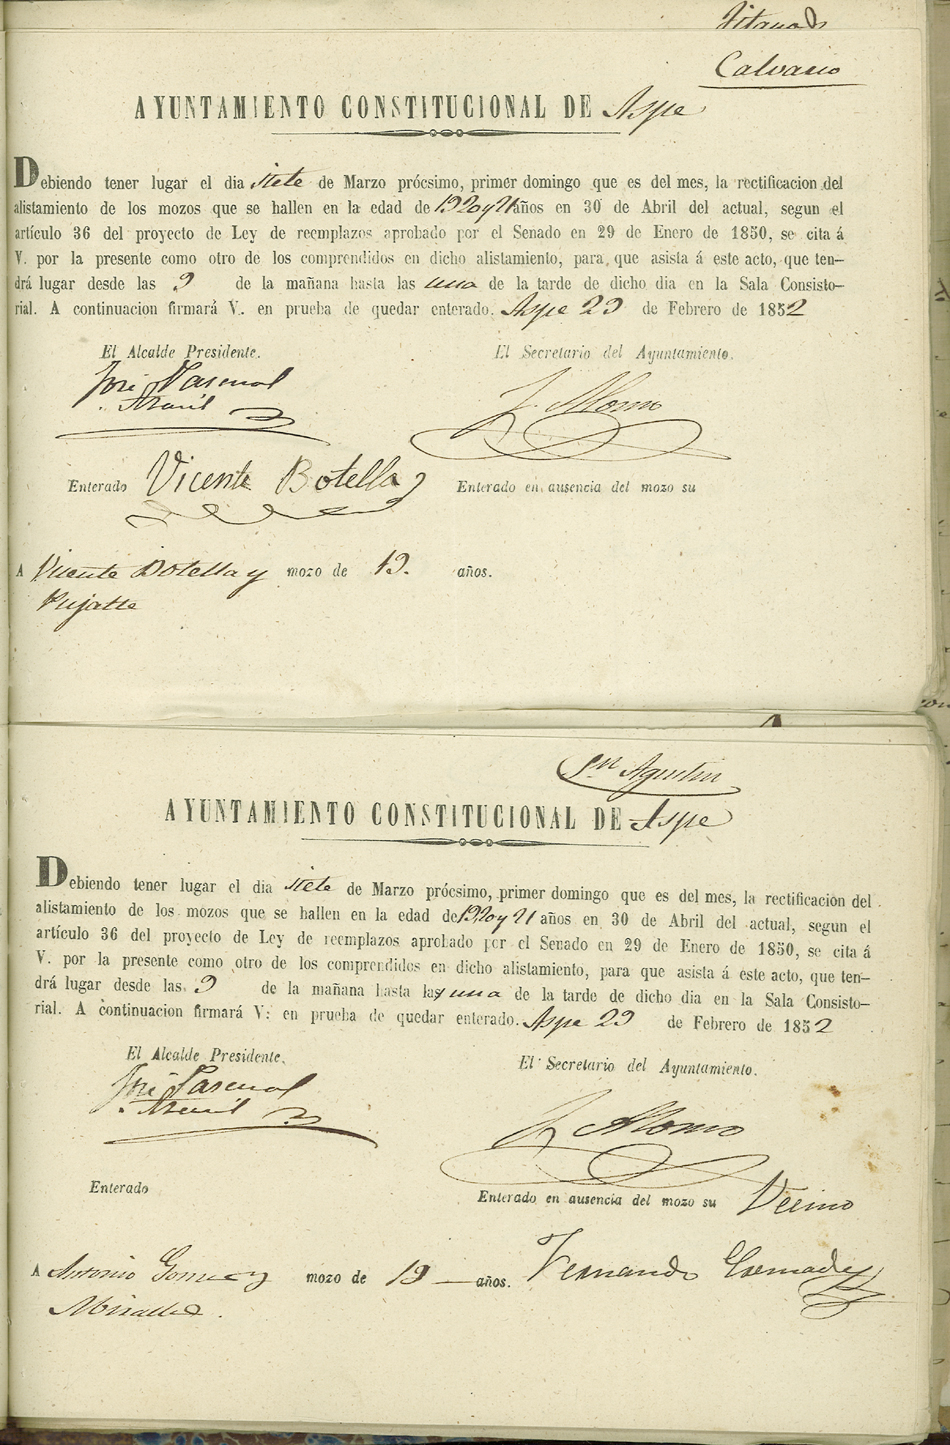 Calvario
AYUNTAMIENTO CONSTITUCIONAL DE Aspe
Debiendo tener lugar el dia siete de Marzo prócsimo, primer domingo que es del mes, la rectificacion del
alistamiento de los mozos que se hallen en la edad de 19 20 y 21 años en 30 de Abril del actual, segun el
artículo 36 del proyecto de Ley de reemplazos aprobado por el Senado en 29 de Enero de 1850, se cita á
V. por la presente como otro de los comprendidos en dicho alistamiento, para que asista á este acto, que ten-
drá lugar desde las 9 de la mañana hasta las una de la tarde de dicho dia en la Sala Consisto-
rial. A continuacion firmará V. en prueba de quedar enterado. Aspe 29 de Febrero de 1852
El Alcalde Presidente. El Secretario del Ayuntamiento.
José Pascual J. Alonso
Enterado Vicente Botella Enterado en ausencia del mozo su
A Vicente Botella y mozo de 19. años.
Pujalte
Sn Agustin
AYUNTAMIENTO CONSTITUCIONAL DE Aspe
Debiendo tener lugar el dia siete de Marzo prócsimo, primer domingo que es del mes, la rectificacion del
alistamiento de los mozos que se hallen en la edad de 19 20 y 21 años en 30 de Abril del actual, segun el
artículo 36 del proyecto de Ley de reemplazos aprobado por el Senado en 29 de Enero de 1850, se cita á
V. por la presente como otro de los comprendidos en dicho alistamiento, para que asista á este acto, que ten-
drá lugar desde las 9 de la mañana hasta las una de la tarde de dicho dia en la Sala Consisto-
rial. A continuacion firmará V. en prueba de quedar enterado. Aspe 29 de Febrero de 1852
El Alcalde Presidente. El Secretario del Ayuntamiento.
José Pascual J. Alonso
Enterado Enterado en ausencia del mozo su Vecino
A Antonio Gomez y mozo de 19 años. Fernando
Miralles.